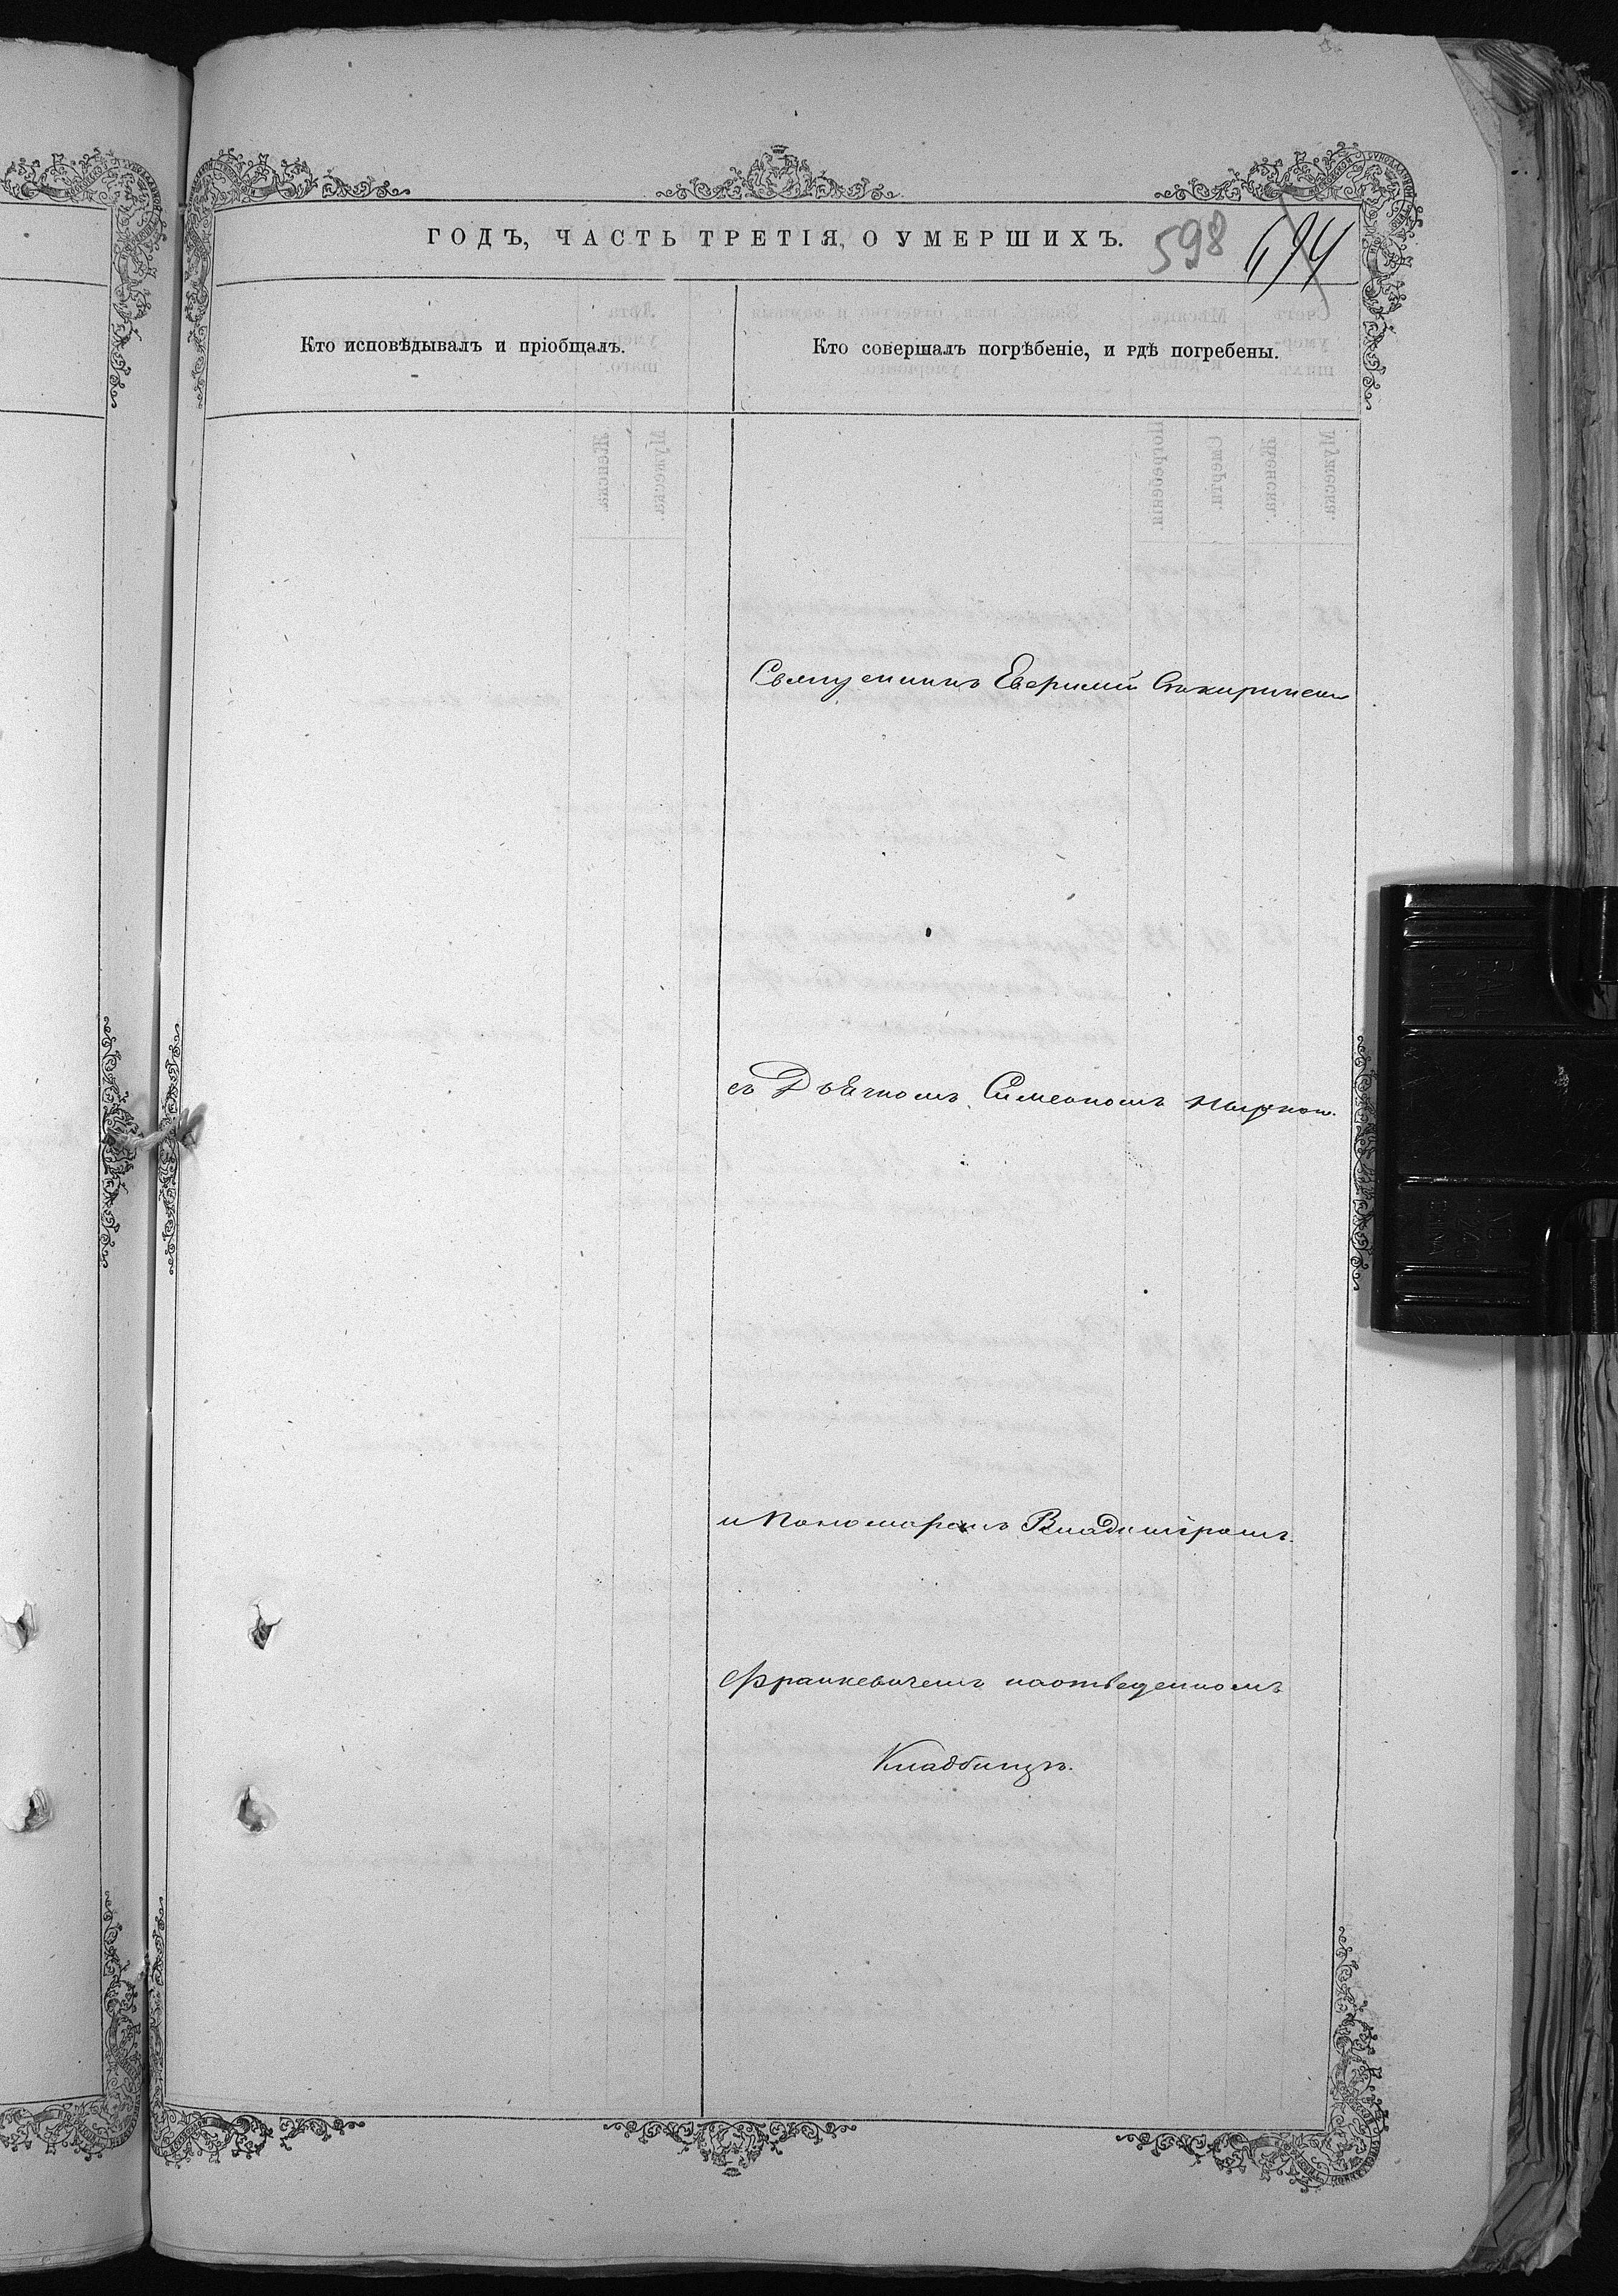 ГОДЪ, ЧАСТЬ ТРЕТІЯ, О УМЕРШИХЪ.
598
Кто исповѣдывалъ и пріобщалъ.
Кто совершалъ погрѣбеніе, и гдѣ погребены.
Священникъ
съ Дьячкомъ Симеономъ
и Пономаремъ Владиміромъ
Франкевичемъ на отведенномъ
Кладбищѣ.